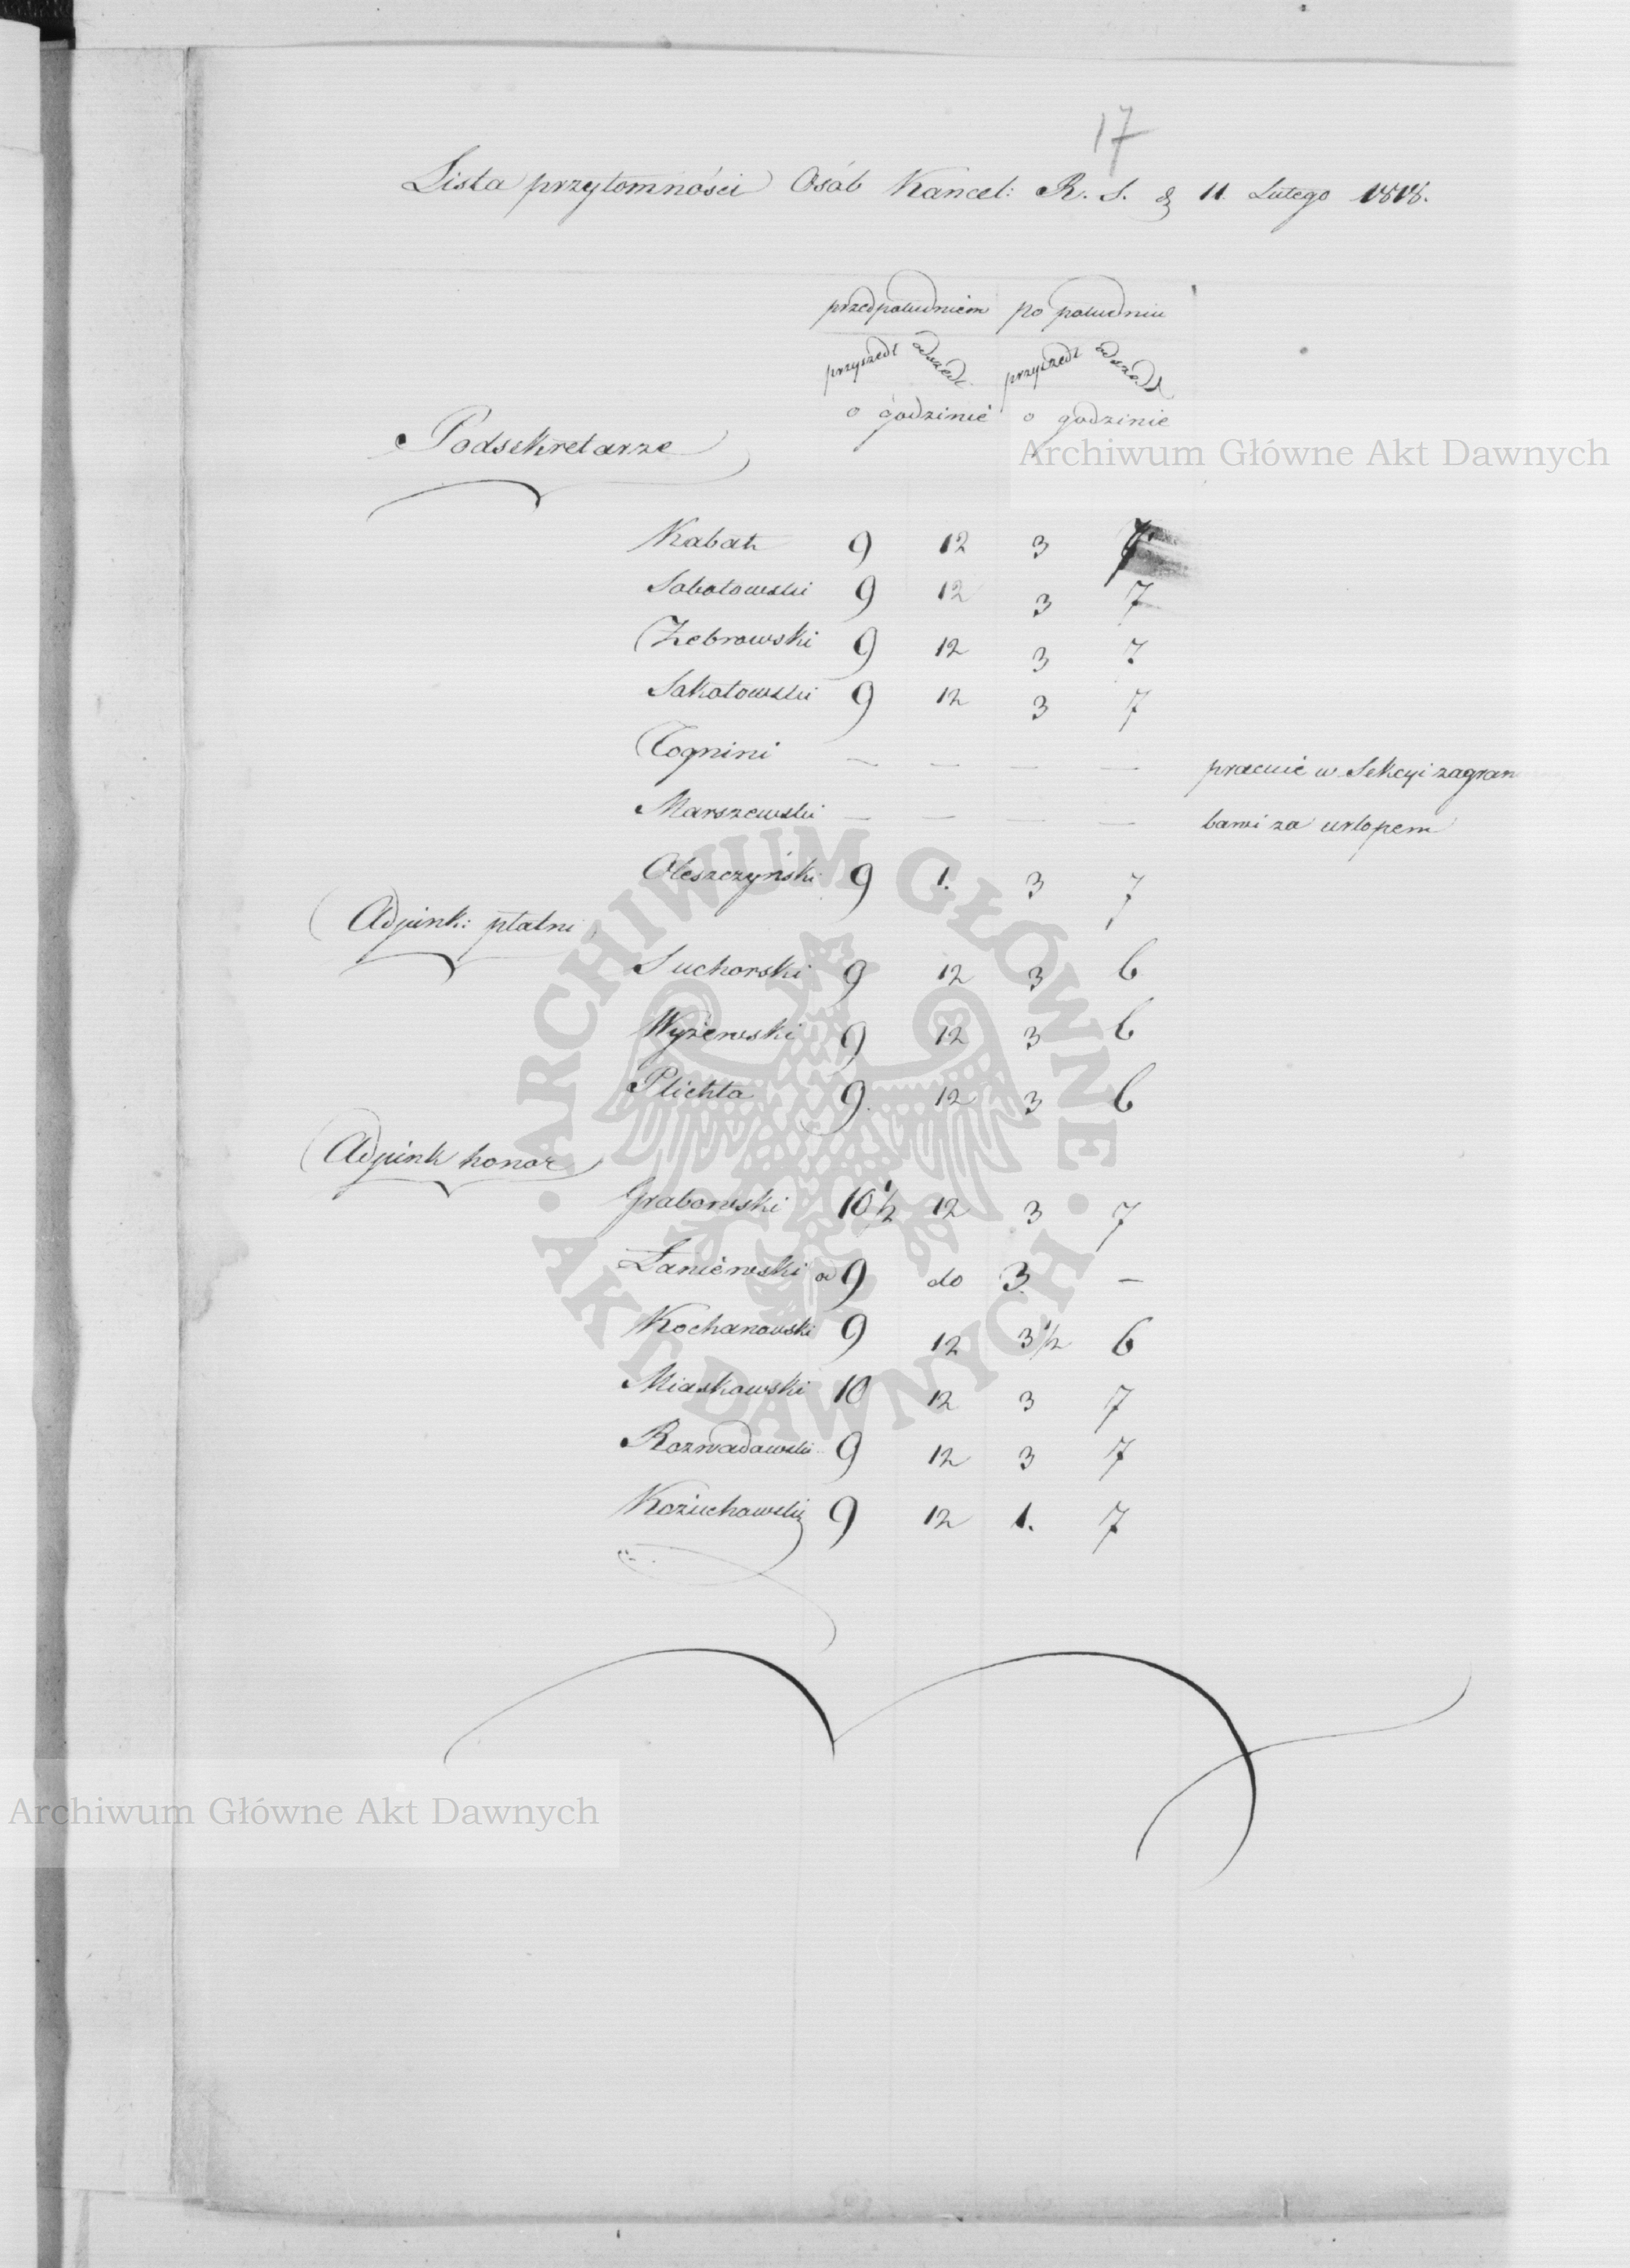 17
Lista przytomności Osób Kancel: R. S. d. 11. Lutego 1818.
przedpołudniem po południu
przyszedł odszedł przyszedł odszedł
o godzinie o godzinie
Archiwum Główne Akt Dawnych
Podsekretarze
Kabat 9 12 3 7
Sobolowski 9 12 3 7
Żebrowski 9 12 3 7
Sakołowski 9 12 3 7
Tognini — — — — pracuie w Sekcyi zagran
Marszewski — — — — bawi za urlopem
Oleszczyński 9 1. 3 7
Adjunk: płatni
Suchorski 9 12 3 6
Wyżewski 9 12 3 6
Plichta 9. 12 3 6
Adjunk honor
Grabowski 10 1/2 12 3 7
Łaniewski od 9 do 3. —
Kochanowski 9 12 3 1/2 6
Miaskowski 10 12 3 7
Rozwadowski 9 12 3 7
Kożuchowski 9 12 1. 7
ARCHIWUM GŁÓWNE · AKT DAWNYCH ·
Archiwum Główne Akt Dawnych